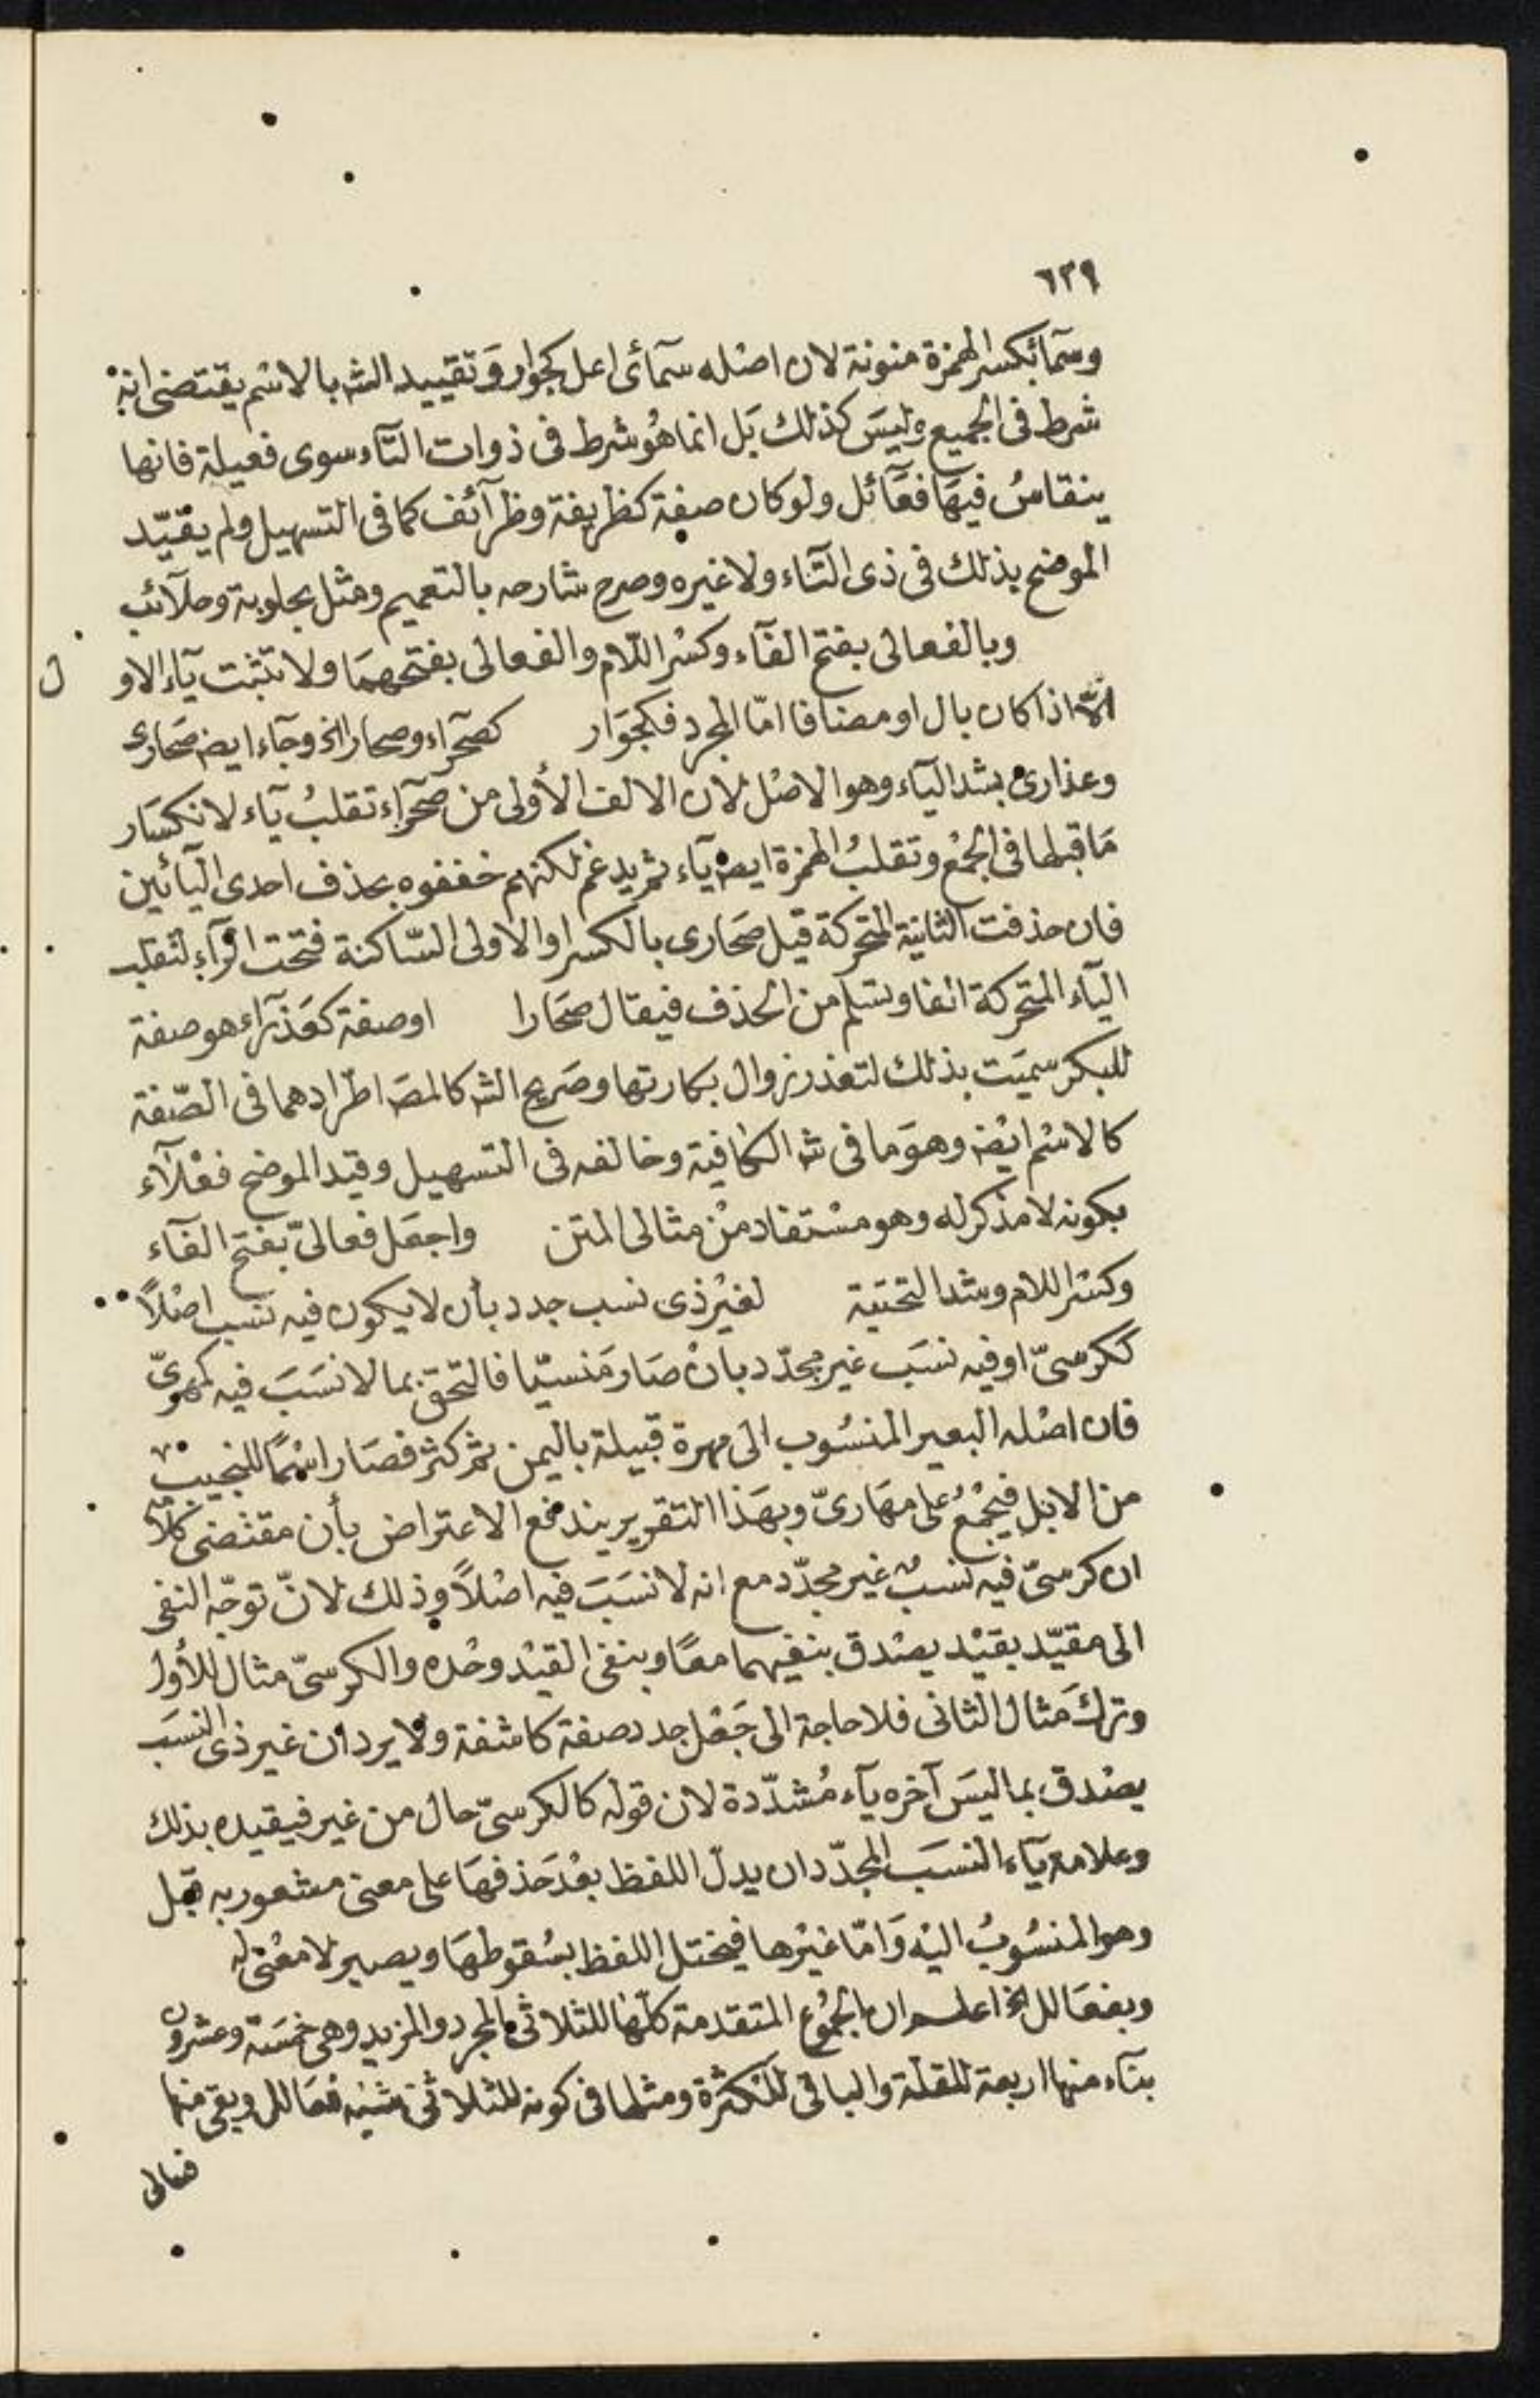 ٦٢٩
وسمآئ بكسر الهمزة منونة لان اصله سمآئى اعل كجوار وتقييد الشه بالاسم يقتضى انه
شرط فى الجميع وليس كذلك بل انما هو شرط فى ذوات التآء سوى فعيلة فانها
ينقاس فيها فعآئل ولو كان صفة كظريفة وظرآئف كما فى التسهيل ولم يقيّد
الموضح بذلك فى ذى التآء ولا غيره وصرح شارحه بالتعميم ومثل بحلوبة وحلآئب
وبالفعالى بفتح الفآء وكسر اللام والفعالى بفتحهما ولا تثبت يآء الاول
الّا اذا كان بال او مضافا امّا المجرد فكجوار كصحرآء وصحار الخ وجآء ايضه صحارى
وعذارى بشد اليآء وهو الاصل لان الالف الأولى من صحرآء تقلب يآء لانكسار
ما قبلها فى الجمع وتقلب الهمزة ايضه يآء ثم يدغم لكنهم خففوه بحذف احدى اليائين
فان حذفت الثانية المتحركة قيل صحارى بالكسر او الاولى الساكنة فتحت الرآء لتقلب
اليآء المتحركة الفا وتسلم من الحذف فيقال صحارا او صفة كعذرآء هو صفة
للبكر سميت بذلك لتعذر زوال بكارتها وصريح الشه كالمصه اطرادهما فى الصّفة
كالاسم ايضه وهو ما فى شه الكافية وخالفه فى التسهيل وقيد الموضح فعلآء
بكونه لا مذكر له وهو مستفاد من مثالى المتن واجعل فعالىّ بفتح الفآء
وكسر اللام وشد التحتية لغير ذى نسب جدد بأن لا يكون فيه نسب اصلاً
ككرسىّ او فيه نسب غير مجدّد بان صار منسيّا فالتحق بما لا نسب فيه كمهرىّ
فان اصله البعير المنسوب الى مهرة قبيلة باليمن ثم كثر فصار اسمًا للنجيب
من الابل فيجمع على مهارىّ وبهذا التقرير يندفع الاعتراض بأن مقتضى كلامه
ان كرسىّ فيه نسب غير مجدّد مع انه لا نسب فيه اصلاً وذلك لانّ توجّه النفى
الى مقيّد بقيد يصدق بنفيهما معًا وبنفى القيد وحده والكرسىّ مثال للأول
وترك مثال الثانى فلا حاجة الى جعل جدد صفة كاشفة ولا يرد ان غير ذى النسب
يصدق بما ليس آخره يآء مُشدّدة لان قوله كالكرسىّ حال من غير فيقيده بذلك
وعلامة يآء النسب المجدّد ان يدلّ اللفظ بعد حذفها على معنى مشعور به قبل
وهو المنسوب اليه وامّا غيرها فيختل اللفظ بسقوطها ويصير لا معنى له
وبفعالل الخ اعلم ان الجموع المتقدمة كلّها للثلاثى المجرد والمزيد وهى خمسة وعشرون
بنآء منها اربعة للقلة والباقى للكثرة ومثلها فى كونه للثلاثى شبه فعالل وبقى منها
فعالى